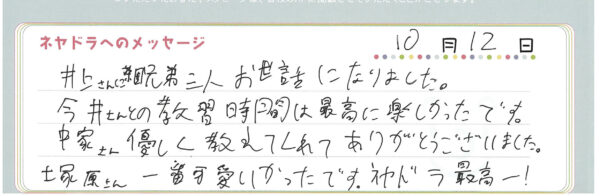 ネヤドラへのメッセージ
10月12日
井上さんに兄弟三人お世話になりました。
今井さんとの教習時間は最高に楽しかったです。
中家さん優しく教えてくれてありがとうございました。
土塚原さん 一番可愛いかったです。ネヤドラ最高ー!